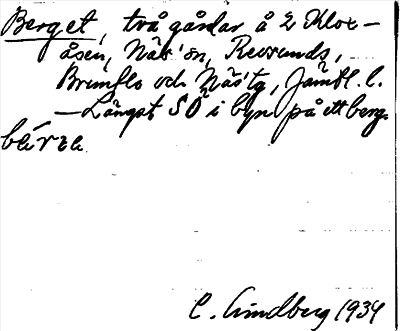 Berget, två gårdar å 2 Klox-
åsen, Näs' sn, Revsunds,
Brunflo och Näs' tg, Jämtl. l.
— Längst SÖ i byn på ett berg.
bär̄ɛ
C. Lindberg 1934